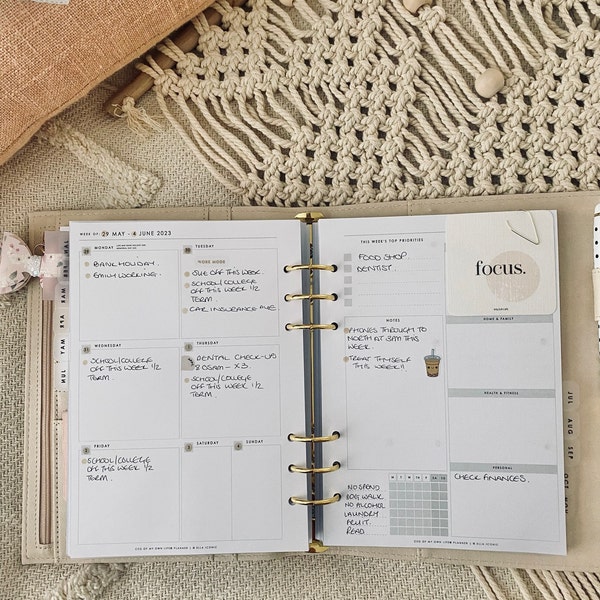 WEEK OF: 29 MAY - 4 JUNE 2023
MONDAY
29
BANK HOLIDAY.
EMILY WORKING.
TUESDAY
30
WORK MODE
SUE OFF THIS WEEK.
SCHOOL/COLLEGE
OFF THIS WEEK 1/2
TERM.
CAR INSURANCE DUE
WEDNESDAY
31
SCHOOL/COLLEGE
OFF THIS WEEK 1/2
TERM.
THURSDAY
1
DENTAL CHECK-UP
8:05AM - X3.
SCHOOL/COLLEGE
OFF THIS WEEK 1/2
TERM.
FRIDAY
2
SCHOOL/COLLEGE
OFF THIS WEEK 1/2
TERM.
SATURDAY
3
SUNDAY
4
CEO OF MY OWN LIFE® PLANNER | © ELLA ICONIC
THIS WEEK'S TOP PRIORITIES
FOOD SHOP.
DENTIST.
focus.
NOTES
PHONES THROUGH TO
NORTH AT 3PM THIS
WEEK.
TREAT THYSELF
THIS WEEK!!
HOME & FAMILY
HEALTH & FITNESS
PERSONAL
CHECK FINANCES.
M T W T F S S
NO SPEND
DOG WALK
NO ALCOHOL
LAUNDRY
FRUIT.
READ.
CEO OF MY OWN LIFE® PLANNER | © ELLA ICONIC
MAR
APR
MAY
JUN
JUL
AUG
SEP
OCT
NOV